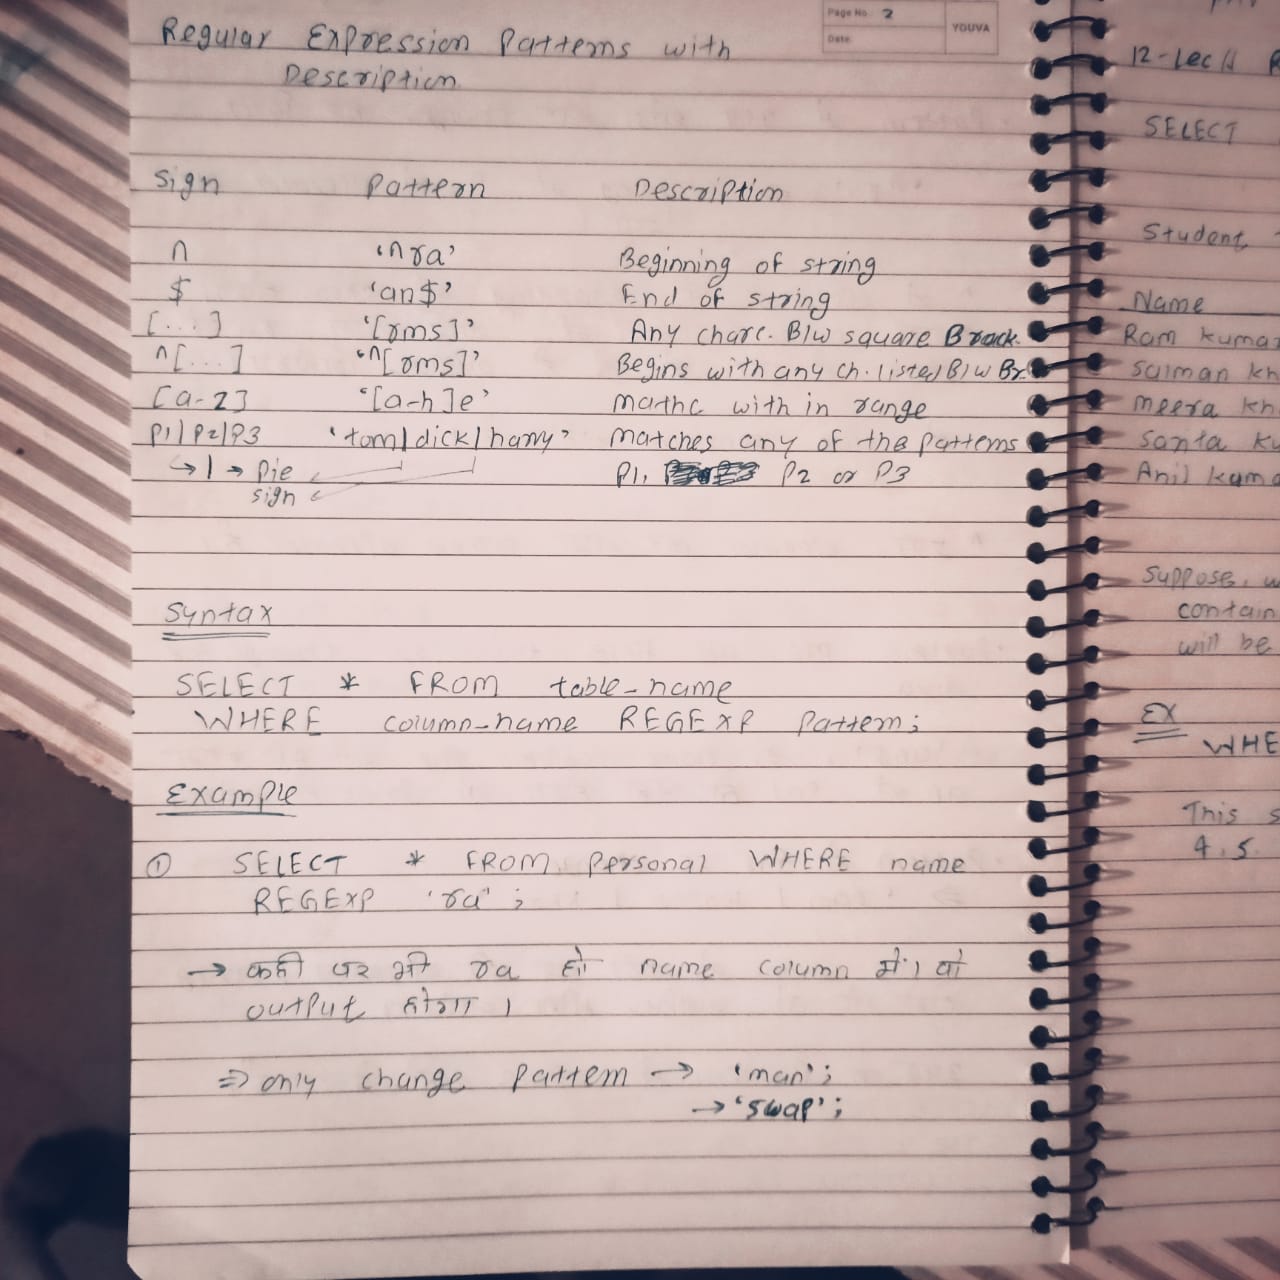 Page No. 2
Date
YOUVA
Regular Expression Patterns with
Description
Sign Pattern Description
^ '^ra' Beginning of string
$ 'an$' End of string
[...] '[rms]' Any charc. B/w square Brack.
^[...] '^[rms]' Begins with any ch. listed B/w Br
[a-z] '[a-h]e' mathc with in range
P1|P2|P3 'tom|dick|harry' matches any of the patterns
↳ | → pie P1, P2 or P3
sign
Syntax
SELECT * FROM table-name
WHERE column-name REGEXP Pattern;
Example
① SELECT * FROM Personal WHERE name
REGEXP 'ra';
→ कही पर भी ra हो name column में। वो
output होगा।
⇒ only change pattern → 'man';
→ 'swap';
12-Lec
SELECT
Student,
Name
Ram kuma
Salman kh
meera kh
Santa ku
Anil kum
Suppose, w
contain
will be
EX
WHE
This s
4.5.